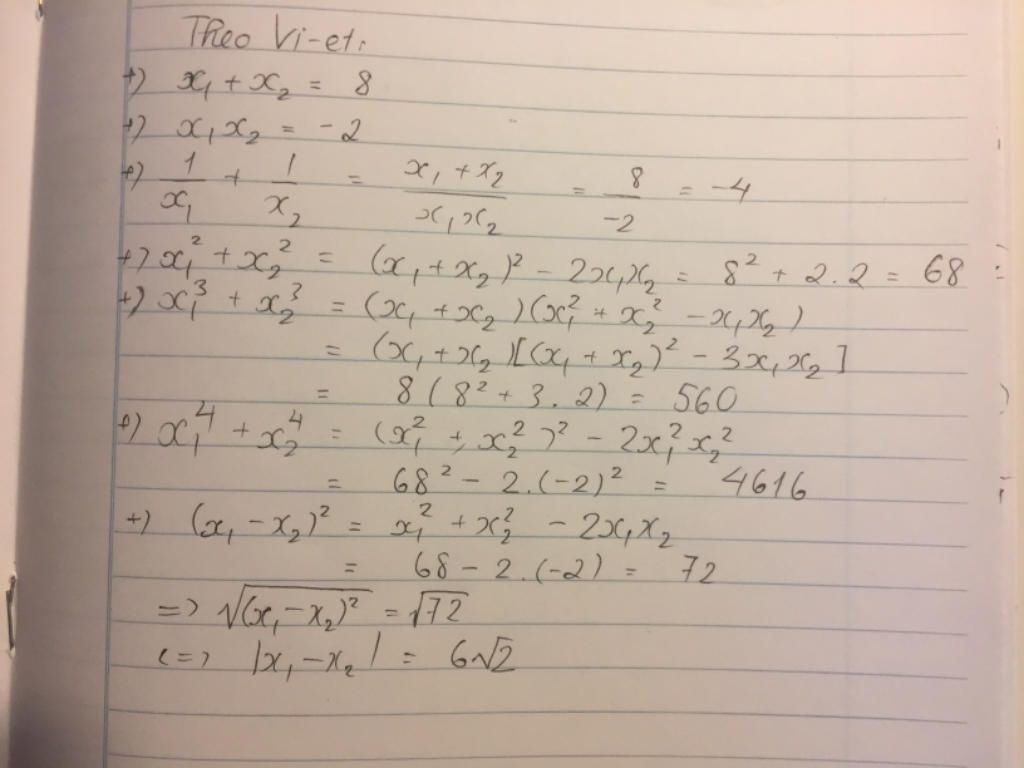 Theo Vi-et:
+) x₁ + x₂ = 8
+) x₁x₂ = -2
+) 1/x₁ + 1/x₂ = (x₁ + x₂)/(x₁x₂) = 8/-2 = -4
+) x₁² + x₂² = (x₁ + x₂)² - 2x₁x₂ = 8² + 2.2 = 68
+) x₁³ + x₂³ = (x₁ + x₂)(x₁² + x₂² - x₁x₂)
= (x₁ + x₂)[(x₁ + x₂)² - 3x₁x₂]
= 8(8² + 3.2) = 560
+) x₁⁴ + x₂⁴ = (x₁² + x₂²)² - 2x₁²x₂²
= 68² - 2.(-2)² = 4616
+) (x₁ - x₂)² = x₁² + x₂² - 2x₁x₂
= 68 - 2.(-2) = 72
=> √(x₁ - x₂)² = √72
<=> |x₁ - x₂| = 6√2